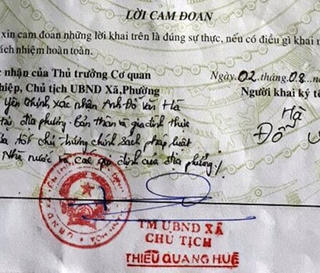 LỜI CAM ĐOAN
xin cam đoan những lời khai trên là đúng sự thực, nếu có điều gì khai
ách nhiệm hoàn toàn.
c nhận của Thủ trưởng Cơ quan
hiệp, Chủ tịch UBND Xã, Phường
Ngày 02 tháng 08
Người khai ký tê
Yên Chính xác nhận Anh Đỗ Văn Hà
địa phương Bản thân và gia đình thực
tốt chủ trương chính sách pháp luật
Nhà nước và các qui định của địa phương
Hà
Đỗ
TM UBND XÃ
CHỦ TỊCH
THIỀU QUANG HUỆ